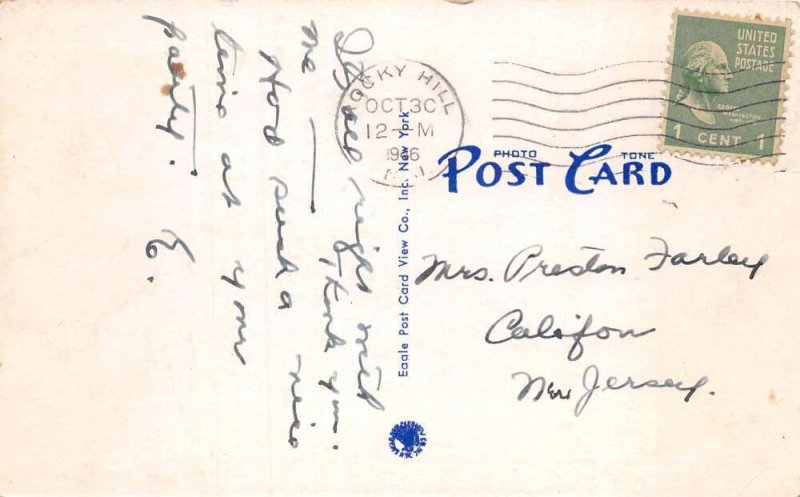 It's all right with
me — Thank you.
Had such a nice
time at your
party. E.
ROCKY HILL
OCT 30
12 - M
N.J.
UNITED
STATES
POSTAGE
GEORGE
WASHINGTON
1 CENT 1
PHOTO TONE
POST CARD
Eagle Post Card View Co., Inc. New York
Mrs. Preston Farley
Califon
New Jersey.